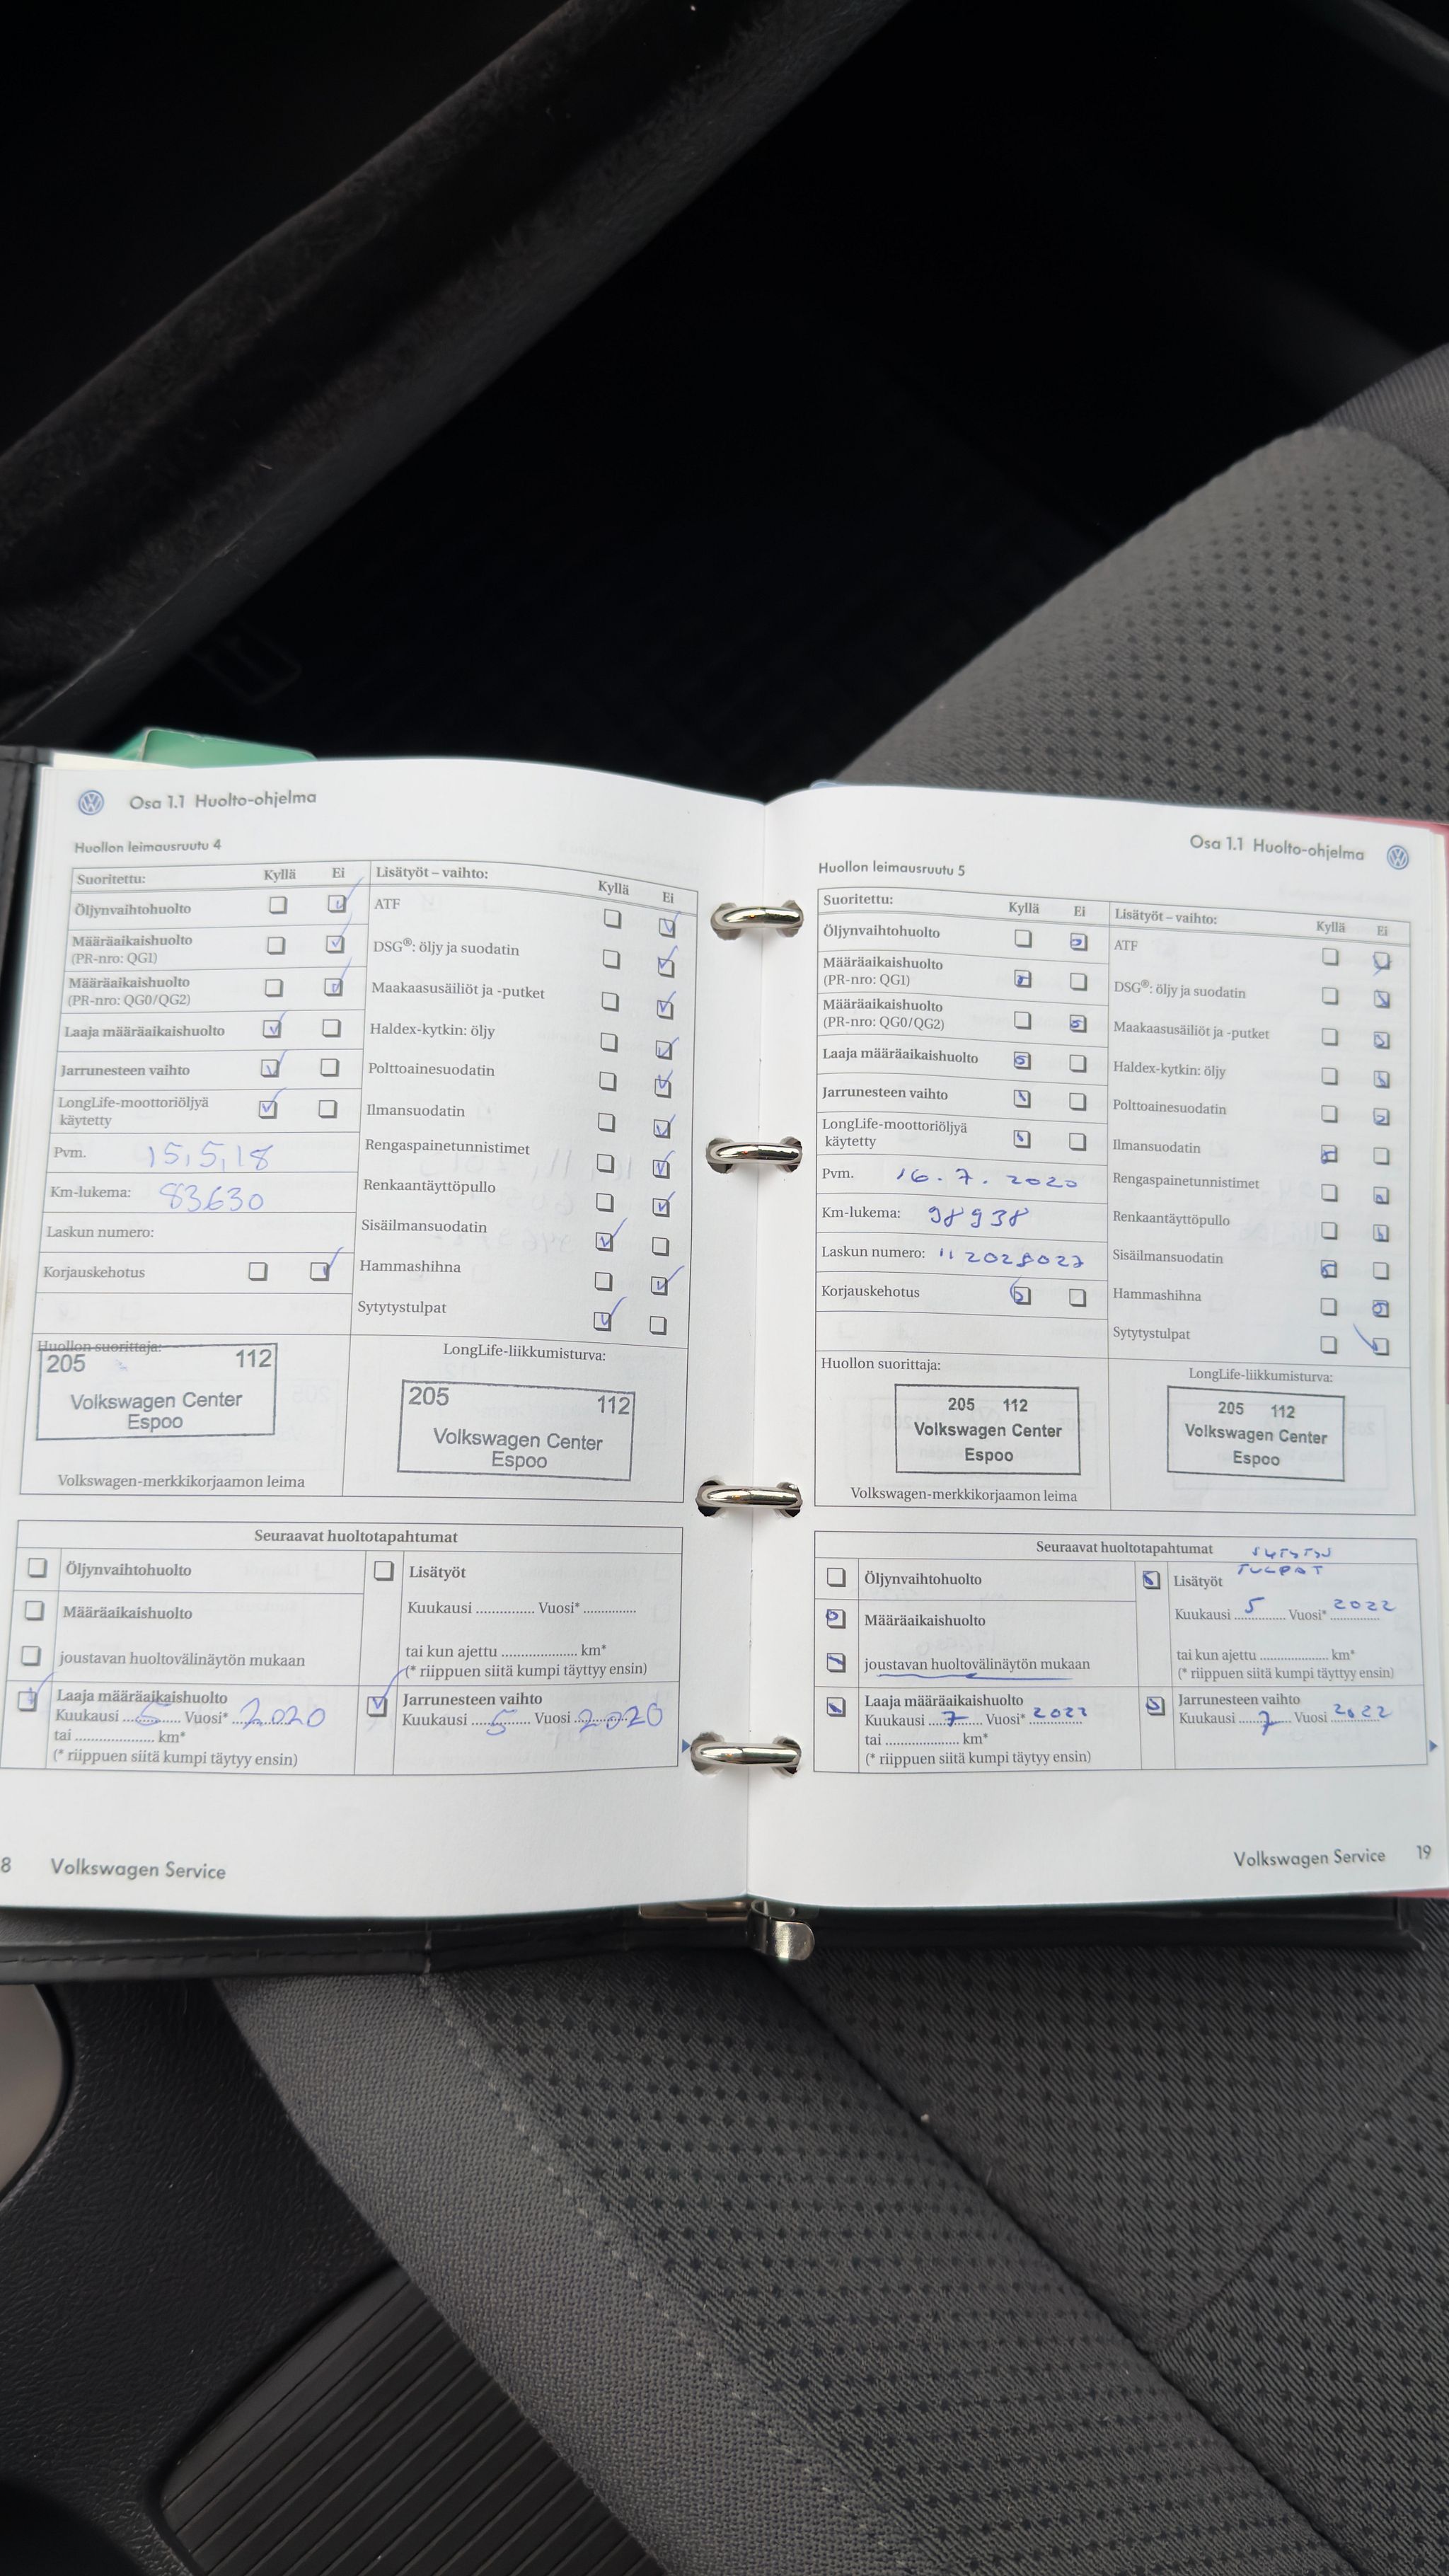 Osa 1.1 Huolto-ohjelma
Huollon leimausruutu 4
Suoritettu: Kyllä Ei
Öljynvaihtohuolto
Määräaikaishuolto
(PR-nro: QG1)
Määräaikaishuolto
(PR-nro: QG0/QG2)
Laaja määräaikaishuolto
Jarrunesteen vaihto
LongLife-moottoriöljyä
käytetty
Pvm. 15,5,18
Km-lukema: 83630
Laskun numero:
Korjauskehotus
Lisätyöt – vaihto: Kyllä Ei
ATF
DSG®: öljy ja suodatin
Maakaasusäiliöt ja -putket
Haldex-kytkin: öljy
Polttoainesuodatin
Ilmansuodatin
Rengaspainetunnistimet
Renkaantäyttöpullo
Sisäilmansuodatin
Hammashihna
Sytytystulpat
Huollon suorittaja:
205 112
Volkswagen Center
Espoo
Volkswagen-merkkikorjaamon leima
LongLife-liikkumisturva:
205 112
Volkswagen Center
Espoo
Seuraavat huoltotapahtumat
Öljynvaihtohuolto
Määräaikaishuolto
joustavan huoltovälinäytön mukaan
Laaja määräaikaishuolto
Kuukausi 5 Vuosi* 2020
tai .................... km*
(* riippuen siitä kumpi täytyy ensin)
Lisätyöt
Kuukausi .............. Vuosi* .............
tai kun ajettu .................... km*
(* riippuen siitä kumpi täyttyy ensin)
Jarrunesteen vaihto
Kuukausi 5 Vuosi 2020
8 Volkswagen Service
Osa 1.1 Huolto-ohjelma
Huollon leimausruutu 5
Suoritettu: Kyllä Ei
Öljynvaihtohuolto
Määräaikaishuolto
(PR-nro: QG1)
Määräaikaishuolto
(PR-nro: QG0/QG2)
Laaja määräaikaishuolto
Jarrunesteen vaihto
LongLife-moottoriöljyä
käytetty
Pvm. 16.7.2020
Km-lukema: 98938
Laskun numero:
Korjauskehotus
Lisätyöt – vaihto: Kyllä Ei
ATF
DSG®: öljy ja suodatin
Maakaasusäiliöt ja -putket
Haldex-kytkin: öljy
Polttoainesuodatin
Ilmansuodatin
Rengaspainetunnistimet
Renkaantäyttöpullo
Sisäilmansuodatin
Hammashihna
Sytytystulpat
Huollon suorittaja:
205 112
Volkswagen Center
Espoo
Volkswagen-merkkikorjaamon leima
LongLife-liikkumisturva:
205 112
Volkswagen Center
Espoo
Seuraavat huoltotapahtumat
Öljynvaihtohuolto
Määräaikaishuolto
joustavan huoltovälinäytön mukaan
Laaja määräaikaishuolto
Kuukausi 7 Vuosi* 2022
tai .................... km*
(* riippuen siitä kumpi täytyy ensin)
SYTYTYS
TULPAT
Lisätyöt
Kuukausi 5 Vuosi* 2022
tai kun ajettu .................... km*
(* riippuen siitä kumpi täyttyy ensin)
Jarrunesteen vaihto
Kuukausi 7 Vuosi 2022
Volkswagen Service 19